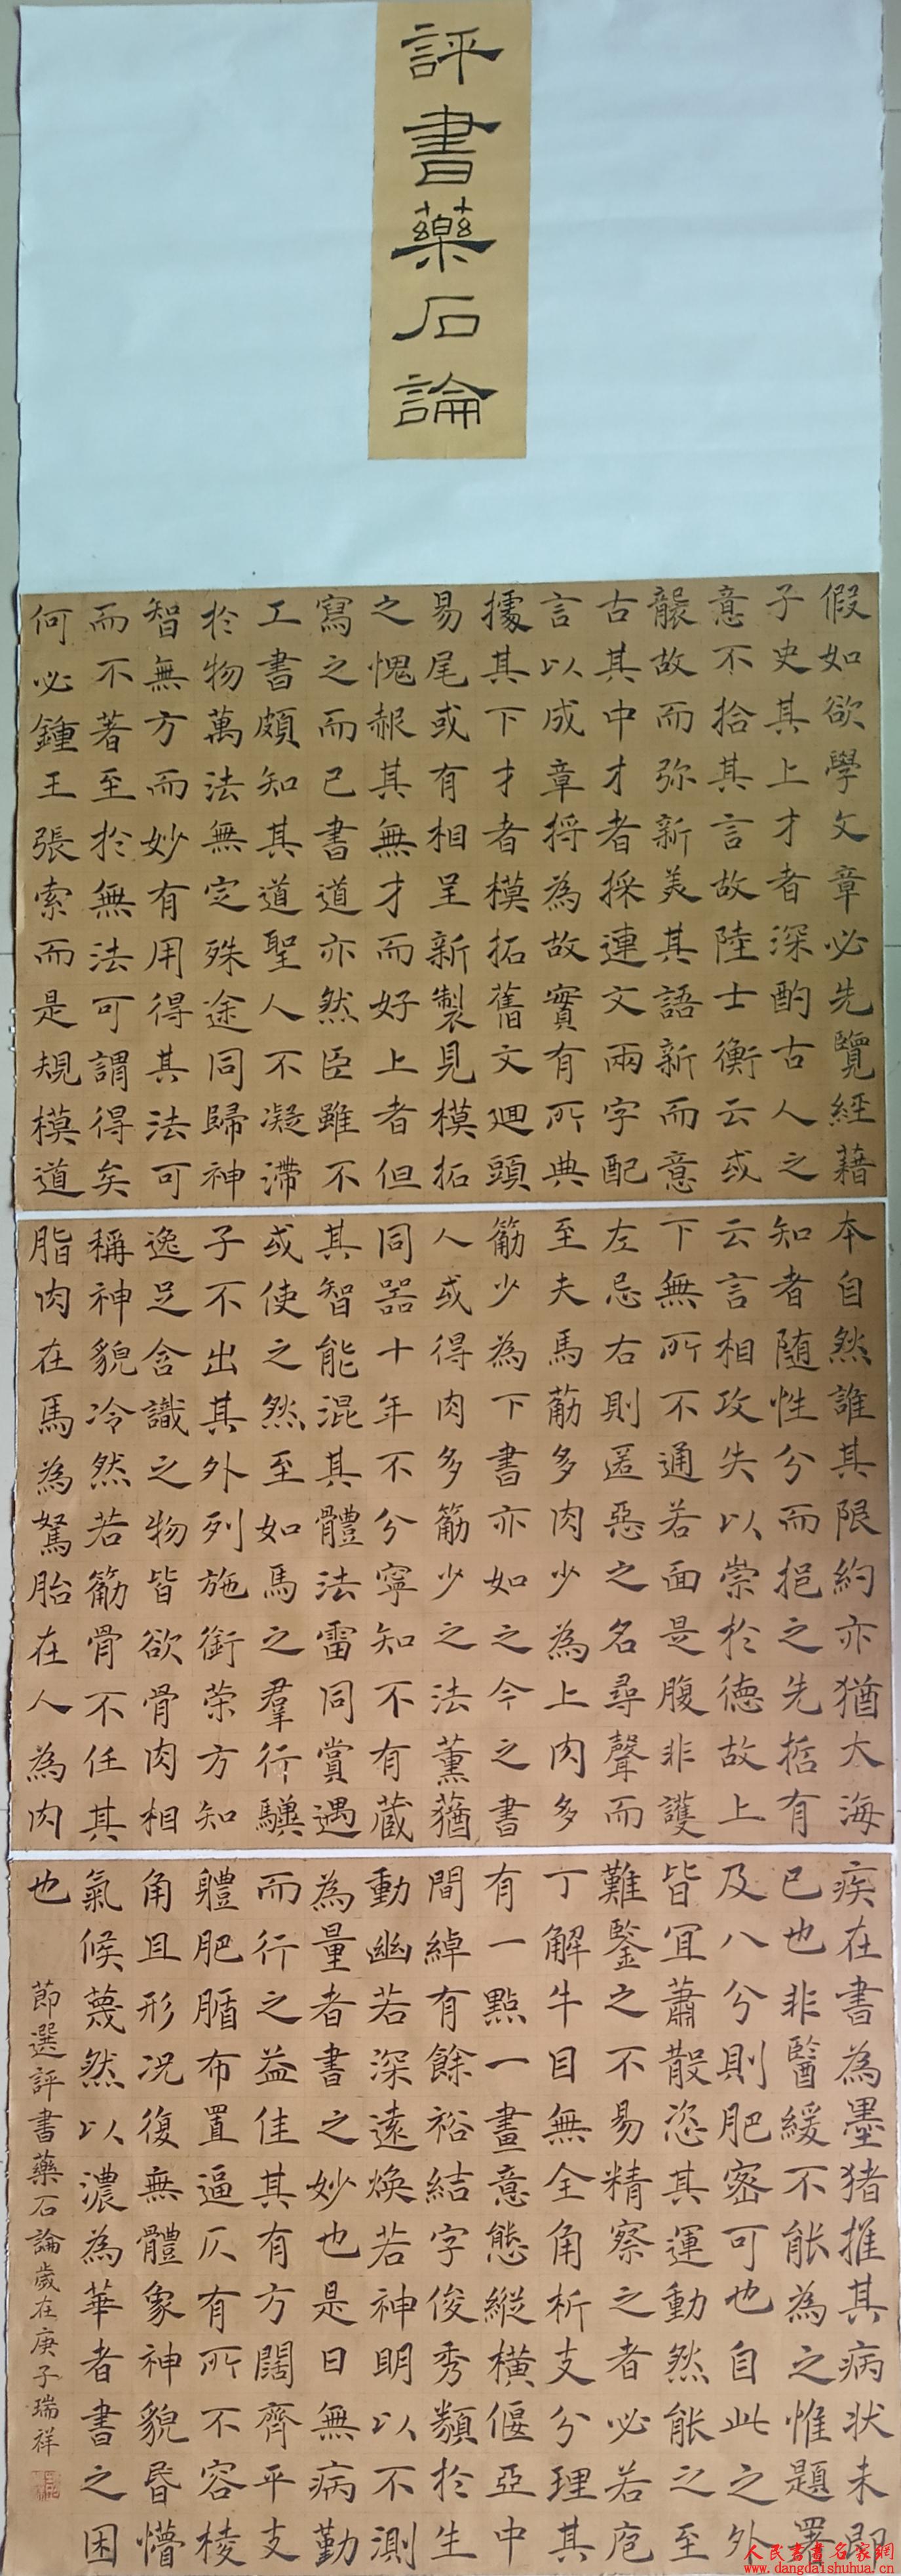 評書藥石論
假如欲學文章必先覽經藉
子史其上才者深酌古人之
意不拾其言故陸士衡云或
襲故而弥新美其語新而意
古其中才者採連文兩字配
言以成章将為故實有所典
據其下才者模拓舊文廻頭
易尾或有相呈新製見模拓
之愧赧其無才而好上者但
寫之而已書道亦然臣雖不
工書頗知其道聖人不凝滯
於物萬法無定殊途同歸神
智無方而妙有用得其法可
而不著至於無法可謂得矣
何必鍾王張索而是規模道
本自然誰其限約亦猶大海
知者随性分而挹之先哲有
云言相攻失以崇於德故上
下無所不通若面是腹非護
左忌右則匿惡之名尋聲而
至夫馬莇多肉少為上肉多
筋少為下書亦如之今之書
人或得肉多筋少之法薰蕕
同器十年不分寧知不有蔵
其智能混其體法雷同賞遇
或使之然至如馬之羣行驥
子不出其外列施銜荣方知
逸足含識之物皆欲骨肉相
稱神貌冷然若筋骨不任其
脂肉在馬為駑胎在人為肉
疾在書為墨猪推其病状未即
已也非醫緩不能為之惟題署
及八分則肥密可也自此之外
皆冝蕭散恣其運動然能之至
難鑒之不易精察之者必若庖
丁解牛目無全角析支分理其
有一點一畫意態縱横偃亞中
間綽有餘裕結字俊秀類於生
動幽若深遠煥若神明以不測
為量者書之妙也是曰無病勤
而行之益佳其有方闊齊平支
體肥腯布置逼仄有所不容棱
角且形况復無體象神貌昏懵
氣候蔑然以濃為華者書之困
也
節選評書藥石論歲在庚子瑞祥
人民書畫名家網
www.dangdaishuhua.cn